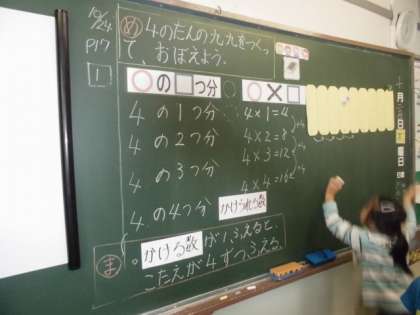 10/24
P17
め 4のだんの九九をつくっ
て、おぼえよう。
1
○の□つ分
○×□
4の1つ分 4×1=4
4の2つ分 4×2=8
4の3つ分 4×3=12
4×4=16
4の4つ分 かけられる数
ま かける数が1ふえると、
こたえが4ずつふえる。